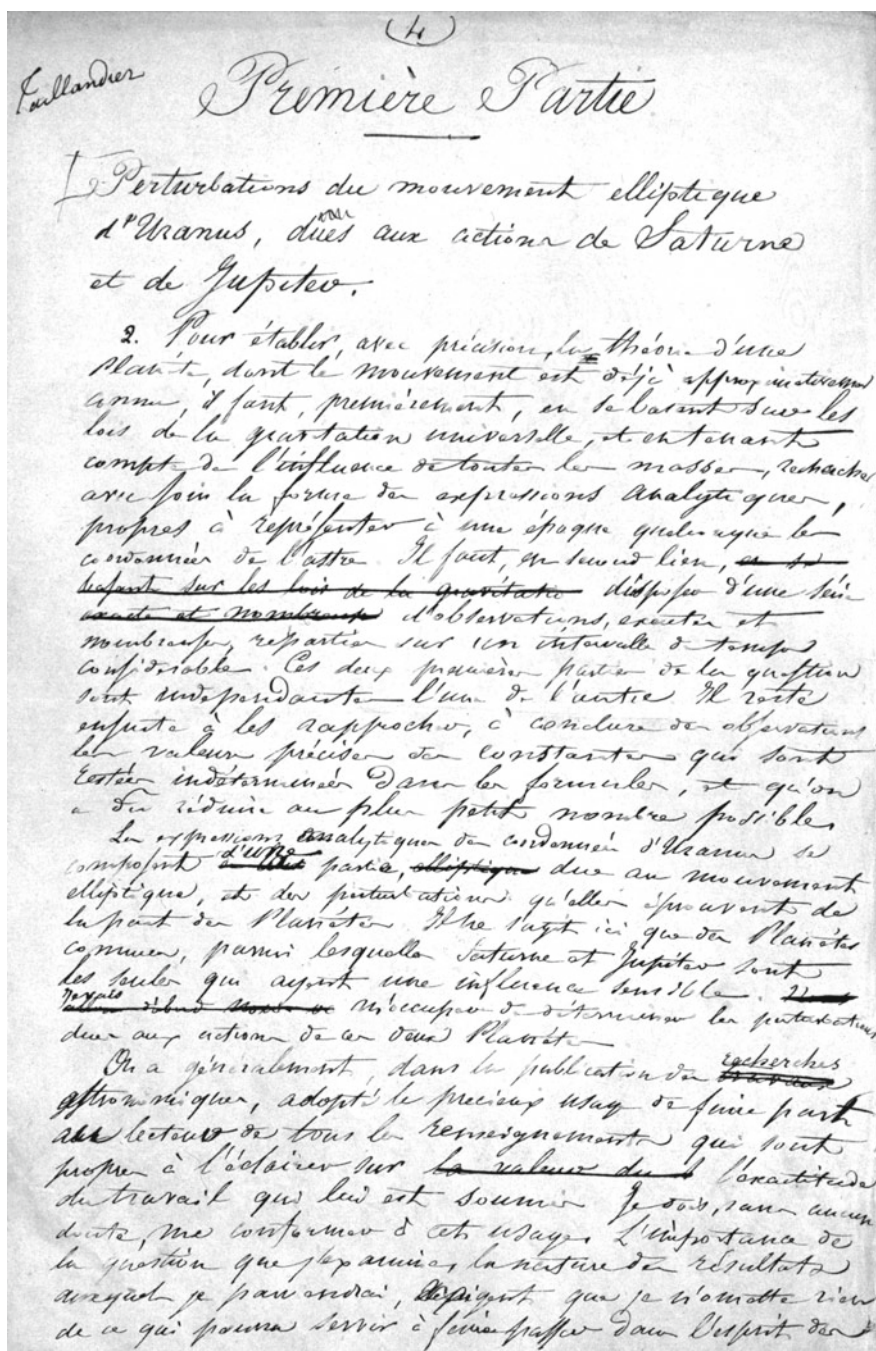 (4)
Taillandier
Première Partie
Perturbations du mouvement elliptique
d'Uranus, dues aux actions de Saturne
et de Jupiter.
2. Pour établir, avec précision, la théorie d'une
Planète, dont le mouvement est déjà approximativement
connu, il faut, premièrement, en se basant sur les
lois de la gravitation universelle, et en tenant
compte de l'influence de toutes les masses, rechercher
avec soin la forme des expressions analytiques,
propres à représenter à une époque quelconque les
coordonnées de l'astre. Il faut, en second lieu, en se
basant sur les lois de la gravitatio disposer d'une série
exacte et nombreuse d'observations, exactes et
nombreuses, réparties sur un intervalle de temps
considérable. Ces deux premières parties de la question
sont indépendantes l'une de l'autre. Il reste
ensuite à les rapprocher, à conclure des observations
les valeurs précises des constantes qui sont
restées indéterminées dans les formules, et qu'on
a dû réduire au plus petit nombre possible.
Les expressions analytiques des coordonnées d'Uranus se
composent d'une partie, elliptique due au mouvement
elliptique, et des perturbations qu'elles éprouvent de
la part des Planètes. Il ne s'agit ici que des Planètes
connues, parmi lesquelles Saturne et Jupiter sont
les seules qui ayent une influence sensible.
Je vais m'occuper de déterminer les perturbations
dues aux actions de ces deux Planètes.
On a généralement, dans la publication des recherches
astronomiques, adopté le précieux usage de faire part
au lecteur de tous les renseignements qui sont
propres à l'éclairer sur la valeur du l'exactitude
du travail qui lui est soumis. Je dois, sans aucun
doute, me conformer à cet usage. L'importance de
la question que j'examine, la nature des résultats
auxquels je parviendrai, exigent que je n'omette rien
de ce qui pourra servir à faire passer dans l'esprit des